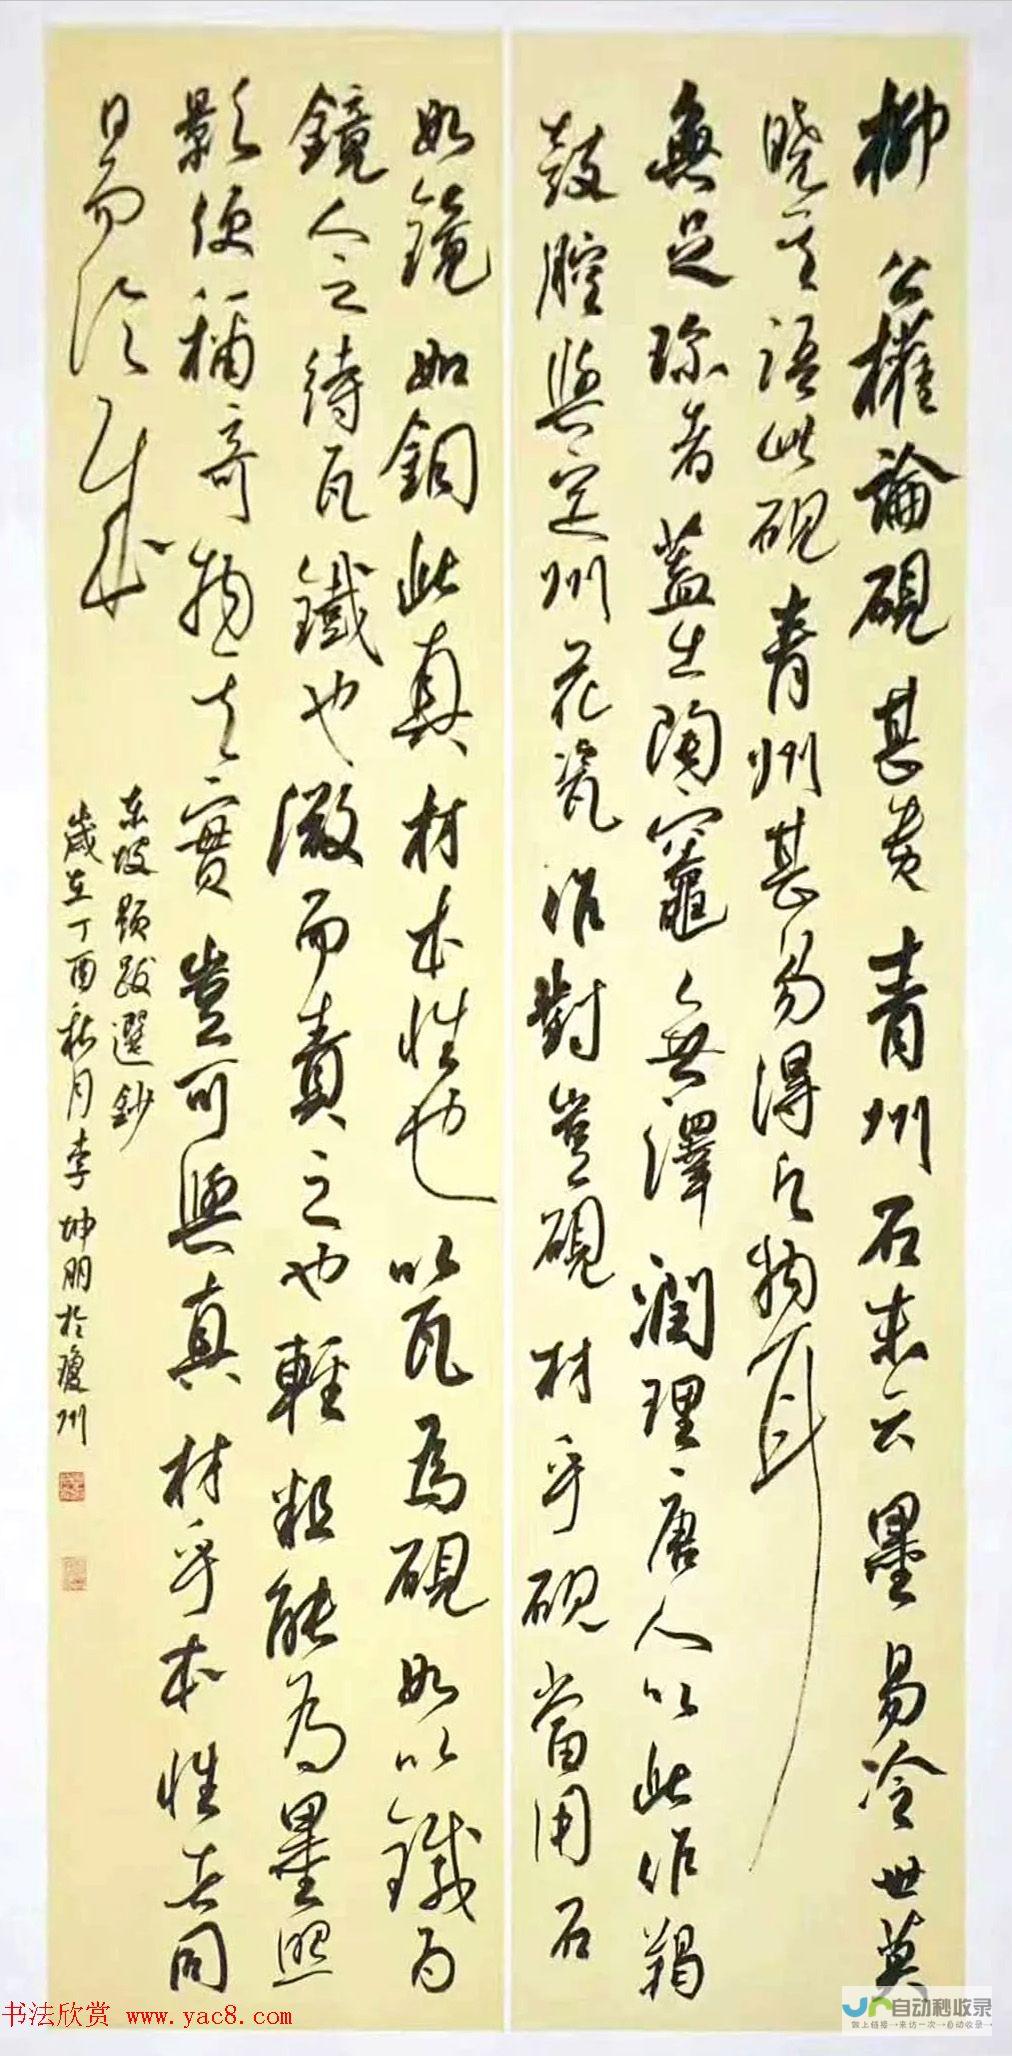 柳公權論硯甚貴青州石末云墨易冷世莫
曉其語此硯青州甚易得凡物耳
無足珎者蓋出陶竈無澤潤理唐人以此作羯
鼓腔與定州花瓷作對豈硯材乎硯當用石
如鏡如銅此真材本性也以瓦為硯如以鐵為
鏡人之待瓦鐵也微而責之也輕粗能為墨照
影便稱奇物其實豈可與真材乎本性者同
日而論哉
东坡题跋選鈔
歲在丁酉秋月李坤朋於瓊州
书法欣赏 www.yac8.com
自动秒收录
做上链接→来访一次→自动收录